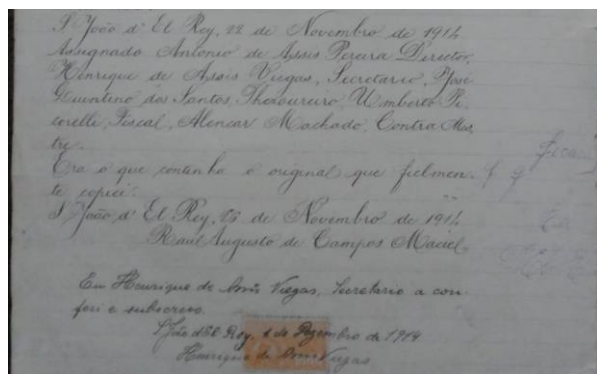 S. João d' El Rey, 22 de Novembro de 1914
Assignado Antonio de Assis Pereira Director,
Henrique de Assis Viegas, Secretario, José
Quintino dos Santos, Thesoureiro, Umberto Pi
corelli, Fiscal, Alencar Machado, Contra Mes
tre.
Era o que continha o original que fielmen
te copiei.
S. João d' El Rey, 26 de Novembro de 1914
Raul Augusto de Campos Maciel
Eu Henrique de Assis Viegas, Secretario a con
feri e subscrevo.
S. João d'El Rey, 1 de Dezembro de 1914
Henrique de Assis Viegas